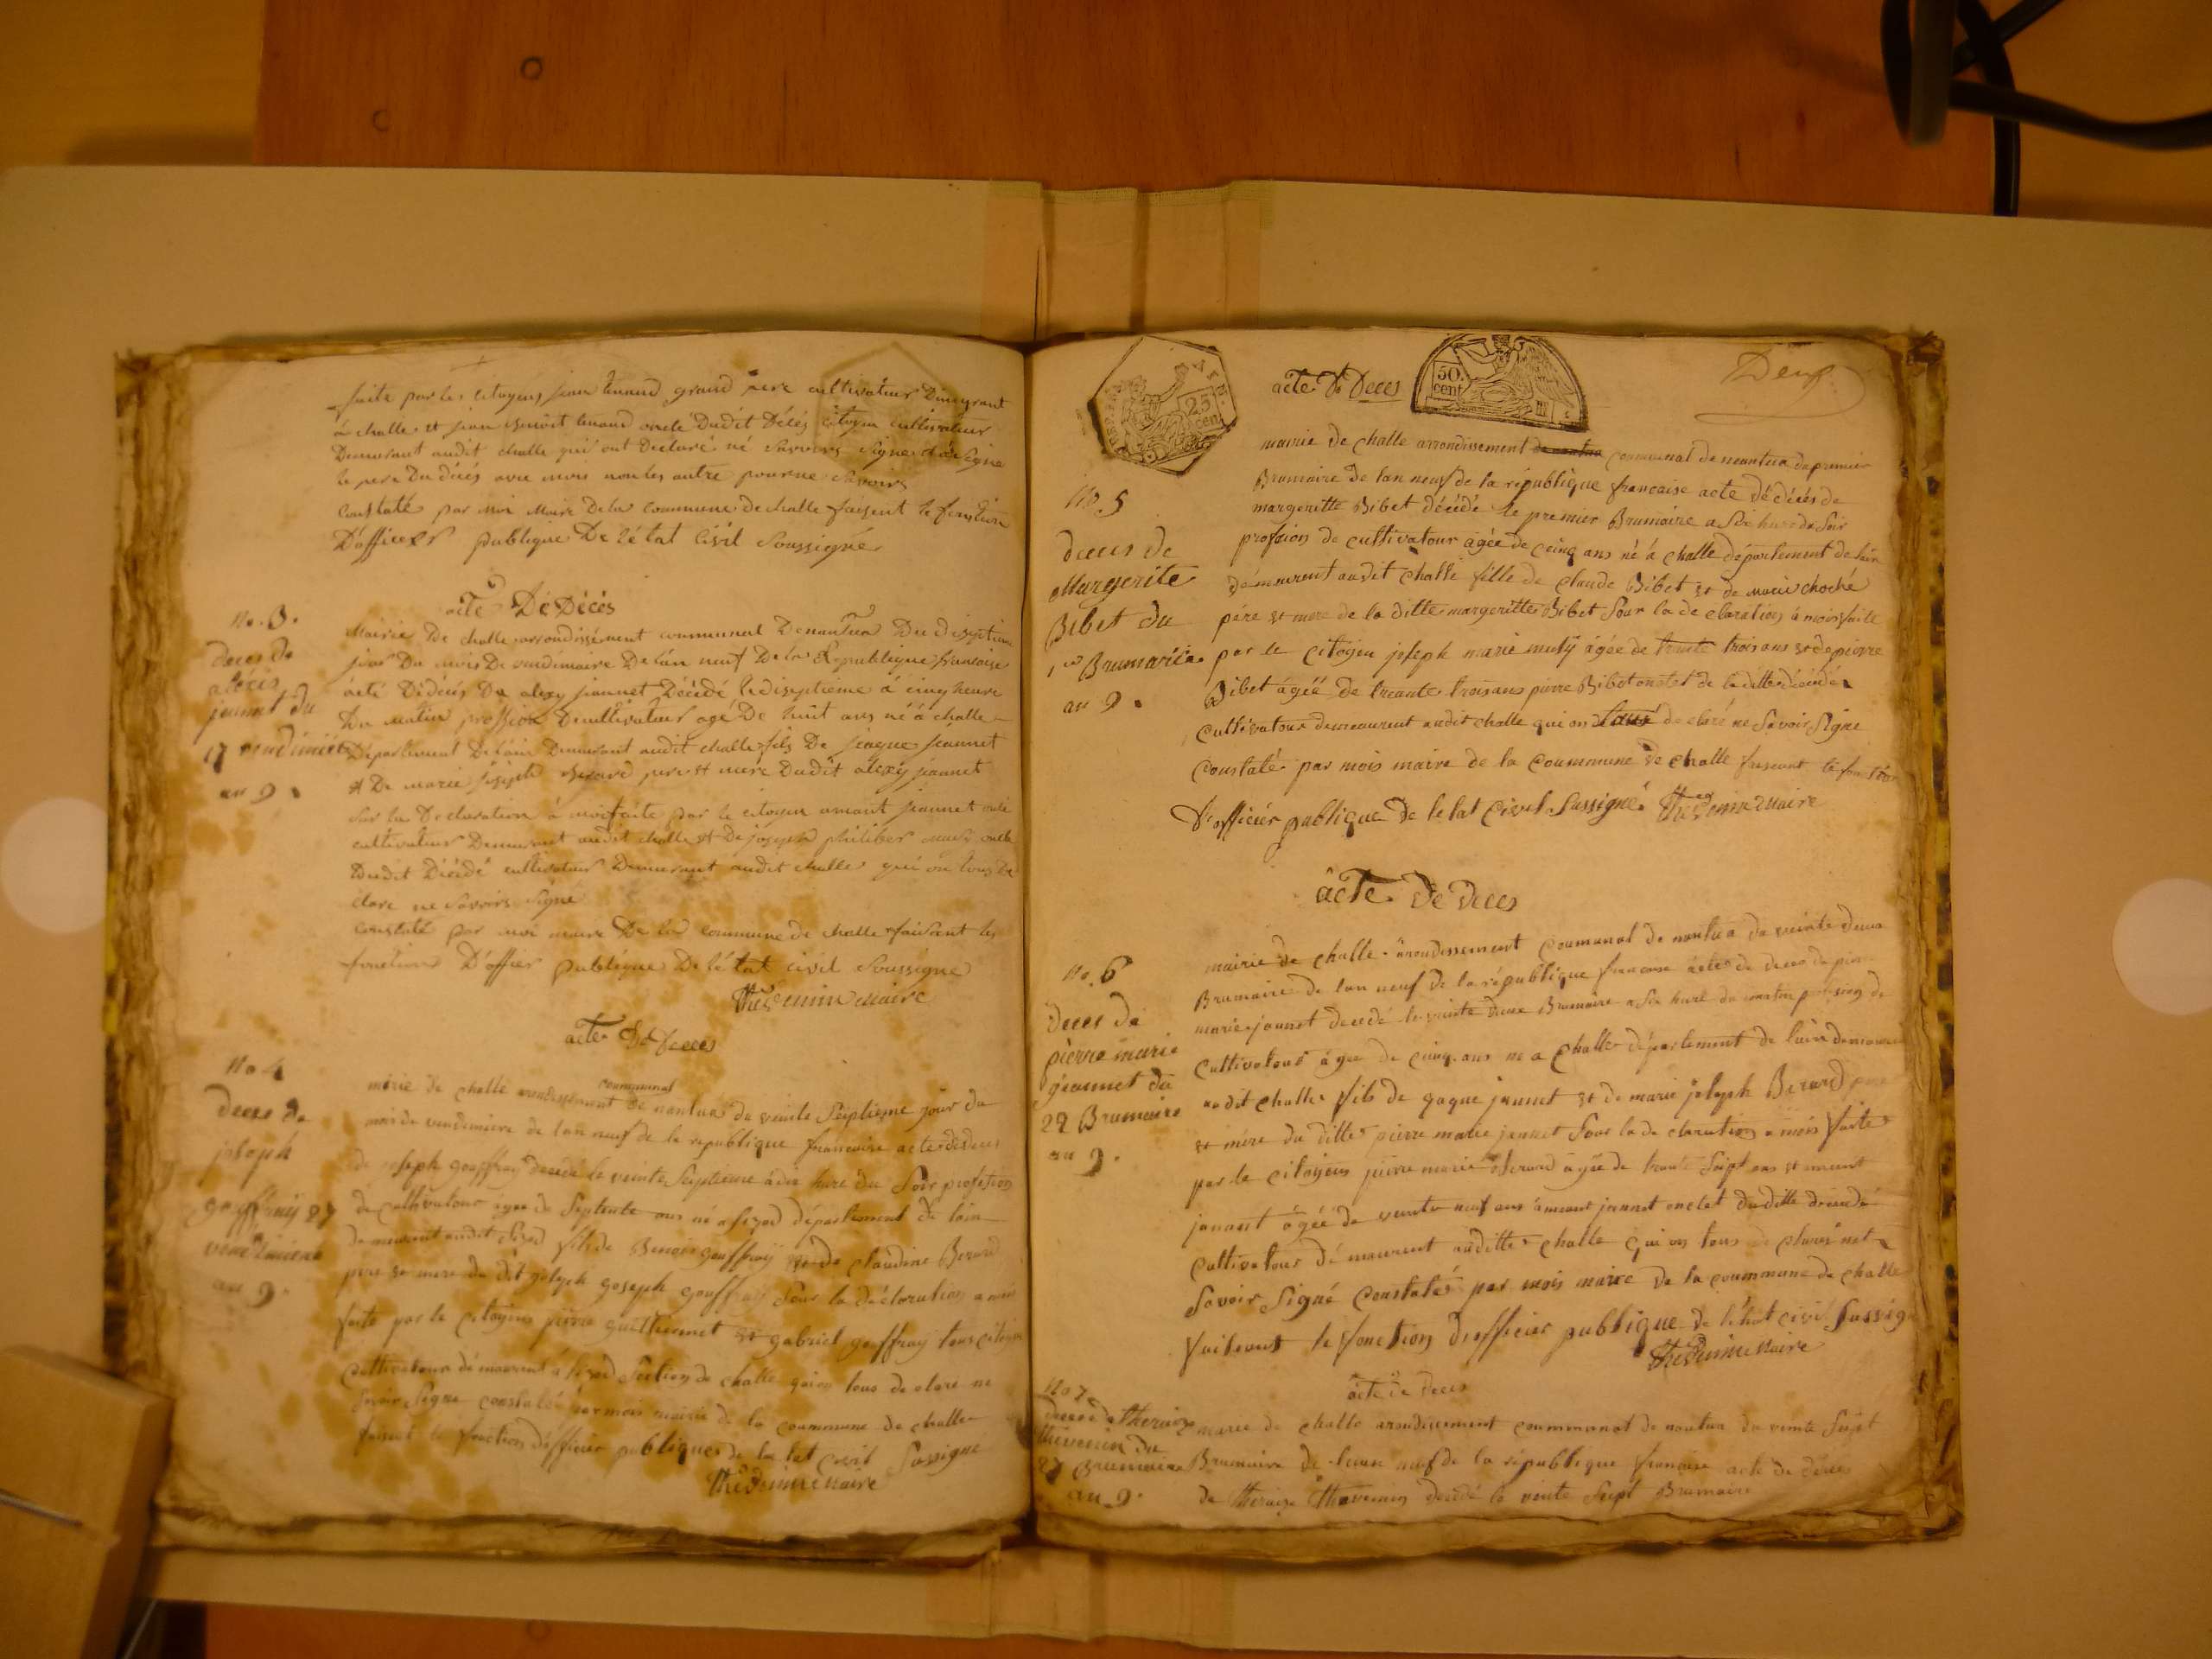 faite par les citoyens jean tenand grand pere cultivateur Dmeurant
à challe et jean Benoit tenand oncle Dudit Décés citoyen cultivateur
Demeurant audit challe qui ont Declaré né Savoirs Signe
le pere Du décés avec mois non les autre pour ne Savoirs
Constaté par Moi Maire De la Commune de challe faisent le fonction
D'officexr publique De l'état Civil Soussigné
acte Dé Décés
No. 3.
décés de
alexis
jannet du
17 vendimiere
an 9.
Mairie De challe arrondissément communal De nantua Du diseptieme
jour Du mois De vendimaire De lán neuf De la Republique française
acté Dé décés De alexy jeannet Décédé le diseptiéme á cinq heure
Du matin profession De cultivateur agé De huit ans né á challe
Département De lain Demeurant audit challe fils De jacque jeannet
et De marie joseph Berard pere et mére Dudit alexy jeannet
Sur la Declaration á moi faite par le citoyen amant jeannet oncle
cultivateur Demeurant audit challe et De joseph philiber oncle
Dudit Décédé cultivateur Demeurant audit challe qui on tous De
clare ne Savoirs Signé
constaté par moi maire De la commune de challe faisant les
fonctions D'offier publique De l'état civil Soussigne
Thevenin Maire
acte De Deces
No 4
deces de
joseph
gouffray 27
vendimiere
an 9.
mairie de challe arrondissement communal de nantua du veinte Septieme jour du
mois de vendimiere de lan neuf de la republique francaise acte de deces
de joseph gouffray decede le veinte Septieme a dix hure du Soir profesion
de cultivatour agee de Septente ans né a département de lain
demeurant audit fils de Benoit gouffray et de claudine Berard
pere et mere du dit joseph goseph gouffray Sour la déclaration a mois
faite par le citoyens pierre guillermet et gabriel gouffray tous citoyen
Cultivatour démeurent á Section de challe qui on tous de claré ne
Savoir Signe constaté par mois mairie de la coummune de challe
faisent le fonction dofficier publique de la tat Civil Sussigne
Thevenin Maire
acte De Deces
25 cen
50. cent
Deux
No. 5
deces de
Margerite
Bibet du
1er Brumaire
an 9.
mairie de challe arrondissement de nantua communal de nantua du premier
Brumaire de lan neuf de la république francaise acte dé décés de
margeritte Bibet décédé le premier Brumaire a Six hure du Soir
profsion de cultivatour agée de cinq ans né á challe département de lain
démeurent audit challe fille de claude Bibet et de marie choché
pére et mere de la ditte margeritte Bibet Sour la de claration á mois faite
par le citoyen joseph marie agée de trante trois ans et de pierre
Bibet ágéé de treante trois ans pierre Bibet onclet de la ditte décédé
cultivatour demeaurent audit challe qui on tous de claré ne Savoir Signe
Constaté par mois maire de la Coummune de challe faiseant le fonction
d'officiér publique de le tat Civil Sussigné. Thevenin Maire
âcte De Deces
No. 6
deces de
pierre marie
jeannet du
22 Brumaire
an 9.
mairie de challe arondissement Coumunal de nantua du veinte deux
Brumaire de lan neuf de la république francaise acte de deces de pierre
marie jannet decedé le veinte deux Brumaire a Six hure du matin profsion de
Cultivatour ágee de cinq ans né a challe département de lain demeurent
audit challe fils de gaque jannet et de marie joseph Berard pere
et mére du ditte pierre marie jannet Sour la de claration a mois faite
par le citoyens pierre marie Berard agée de trante Seipt ans et amant
jannet ágée de veinte neuf ans ameant jannet onclet du ditte decedé
Cultivatour démeurent auditte challe qui on tous de claré net
Savoir Signé Constaté par mois maire de la coummune de challe
faiseant le fonction dofficier publique de létat civil Sussigné
Thevenin Maire
acte de deces
No 7
deces de theraise
thevenin du
27 Brumaire
an 9.
marie de challe arondisement coummunal de nantua du veinte Seipt
Brumaire de lean neuf de la république francaise acte de déces
de theraise thevenin decedé le veinte Seipt Brumaire